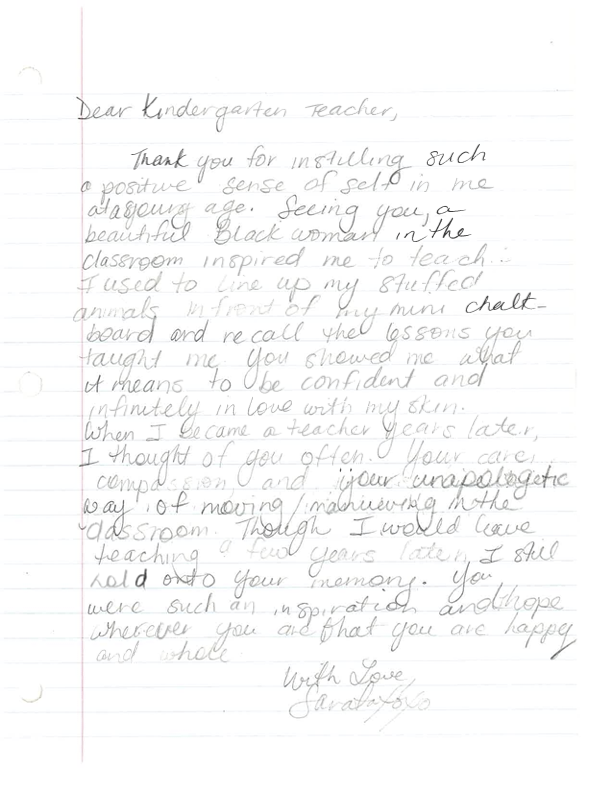 Dear Kindergarten Teacher,
Thank you for instilling such
a positive sense of self in me
at a young age. Seeing you, a
beautiful Black woman in the
classroom inspired me to teach.
I used to line up my stuffed
animals in front of my mini chalk-
board and recall the lessons you
taught me. You showed me what
it means to be confident and
infinitely in love with my skin.
When I became a teacher years later,
I thought of you often. Your care,
compassion and your unapologetic
way of moving/manuevering in the
classroom. Though I would leave
teaching a few years later, I still
hold onto your memory. You
were such an inspiration and hope
wherever you are that you are happy
and whole.
With Love,
Sarata XoXo